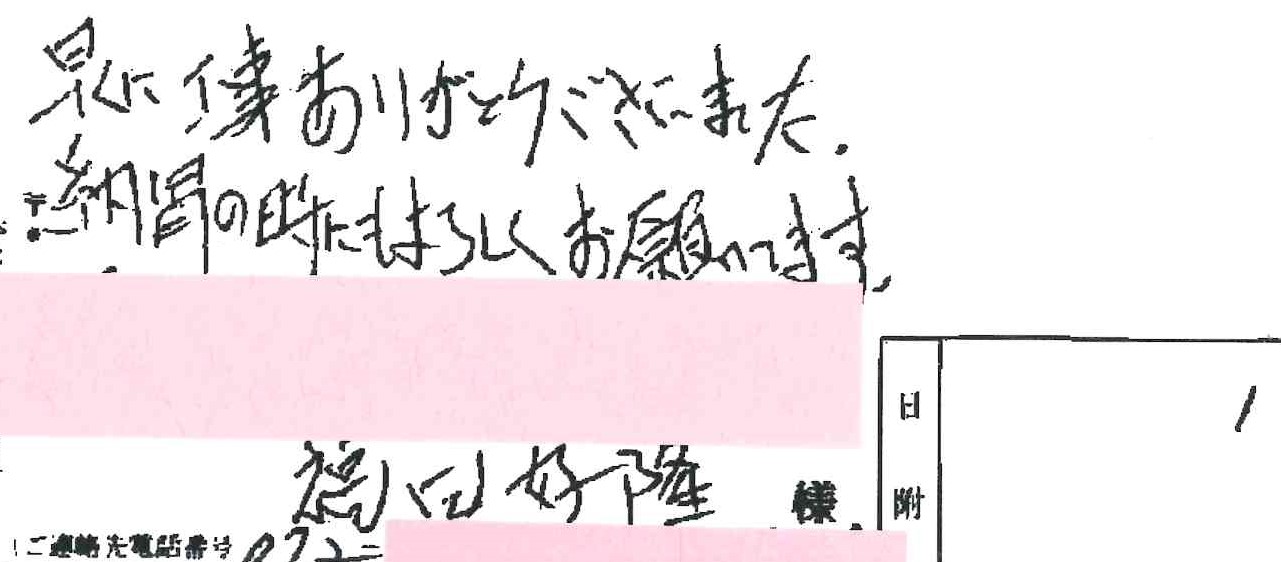 早くに僕ありがとうございました.
〒納骨の時にもよろしくお願いします.
好隆 様
日附
1
ご連絡先電話番号 072-